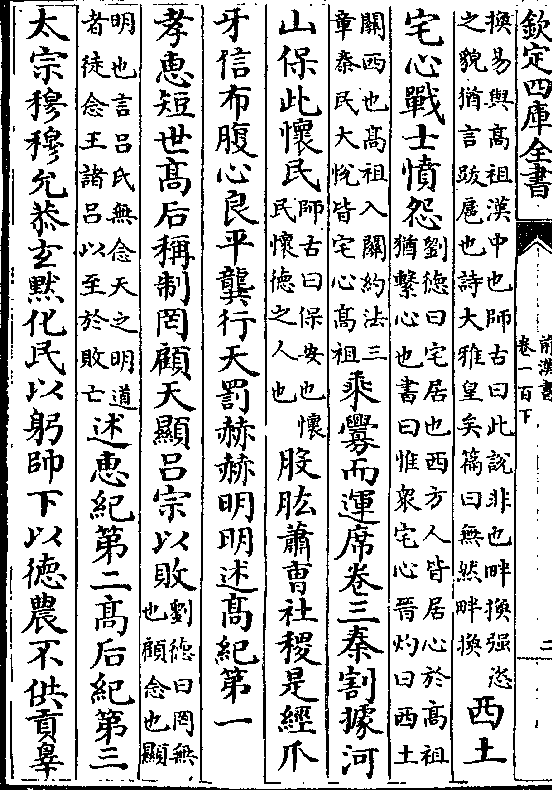 欽定四庫全書
前漢書
卷一百下
二
換易與髙祖漢中也師古曰此說非也畔換强恣
之貌猶言跋扈也詩大雅皇矣篇曰無然畔換
西土
宅心戰士憤怨
劉徳曰宅居也西方人皆居心於髙祖
猶繫心也書曰惟衆宅心晉灼曰西土
關西也髙祖入關約法三
章秦民大悅皆宅心髙祖
乘釁而運席卷三秦割據河
山保此懷民
師古曰保安也懷
民懷徳之人也
股肱蕭曹社稷是經爪
牙信布腹心良平龔行天罰赫赫明明述髙紀第一
孝恵短世髙后稱制罔顧天顯吕宗以敗
劉徳曰罔無
也顧念也顯
明也言吕氏無念天之明道
者徒念王諸吕以至於敗亡
述恵紀第二髙后紀第三
太宗穆穆允恭玄黙化民以躬帥下以徳農不供貢辠